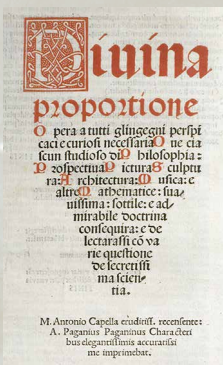 Diuina
proportione
O pera a tutti glingegni perspi
caci e curiosi necessaria O ue cia
scun studioso di P hilosophia:
P rospectiua P ictura S culptu
ra: A rchitectura: M usica: e
altre M athematice: sua
uissima: sottile: e ad
mirabile doctrina
consequira: e de
lectarassi cō va
rie questione
de secretissi
ma scien-
tia.
M. Antonio Capella eruditiss. recensente:
A. Paganius Paganinus Characteri
bus elegantissimis accuratissi
me imprimebat.